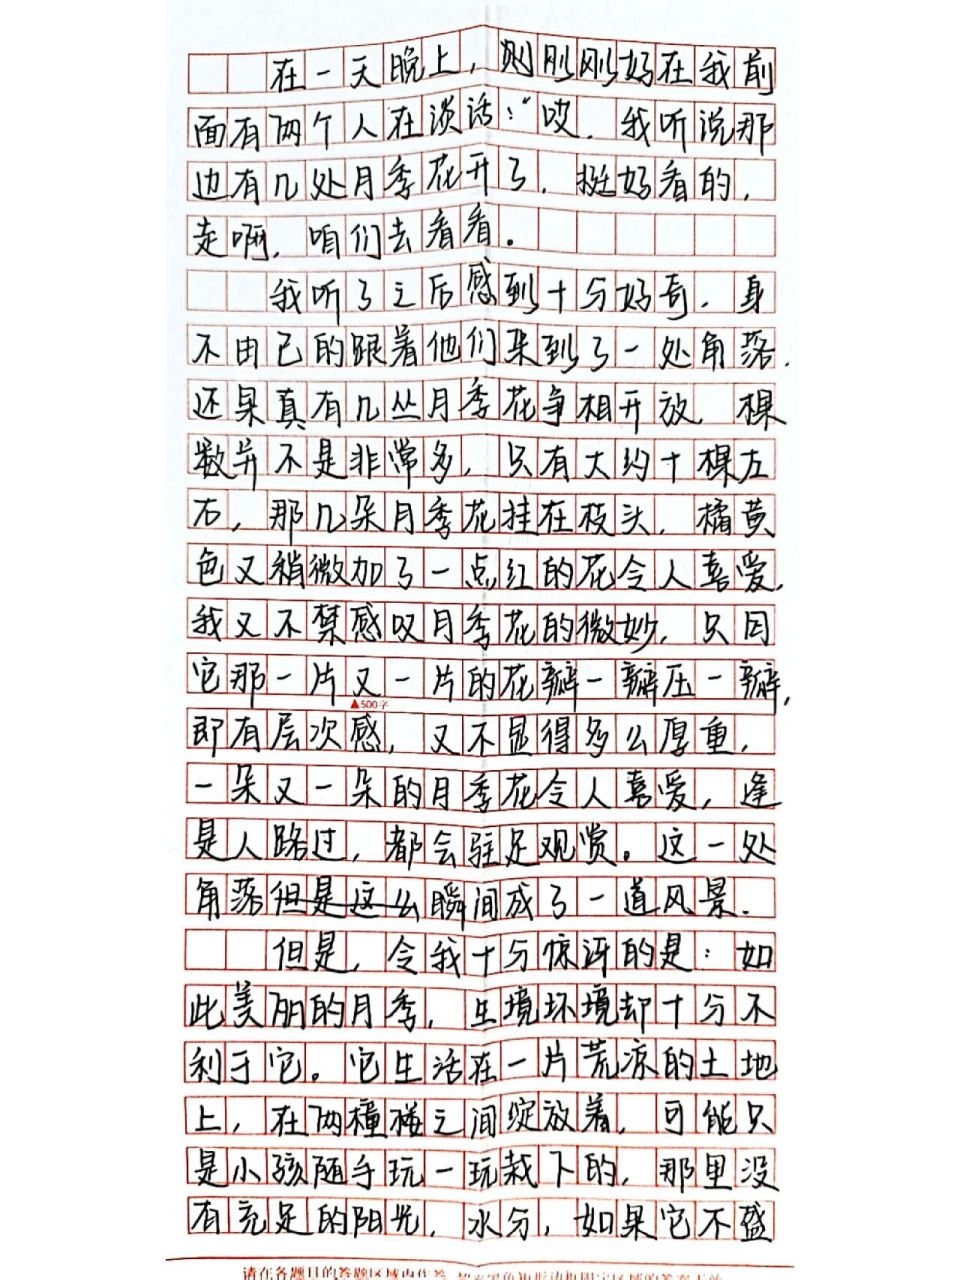 在一天晚上，则刚刚好在我前
面有两个人在谈话：“哎，我听说那
边有几处月季花开了，挺好看的，
走啊，咱们去看看。
我听了之后感到十分好奇，身
不由己的跟着他们来到了一处角落，
还果真有几丛月季花争相开放，棵
数并不是非常多，只有大约十棵左
右，那几朵月季花挂在枝头，橘黄
色又稍微加了一点红的花令人喜爱，
我又不禁感叹月季花的微妙，只因
它那一片又一片的花瓣一瓣压一瓣，
▲500字
即有层次感，又不显得多么厚重，
一朵又一朵的月季花令人喜爱，逢
是人路过，都会驻足观赏。这一处
角落但是这么瞬间成了一道风景．
但是，令我十分惊讶的是：如
此美丽的月季，生境环境却十分不
利于它。它生活在一片荒凉的土地
上，在两幢楼之间绽放着，可能只
是小孩随手玩一玩栽下的，那里没
有充足的阳光，水分，如果它不盛
请在各题目的答题区域内作答